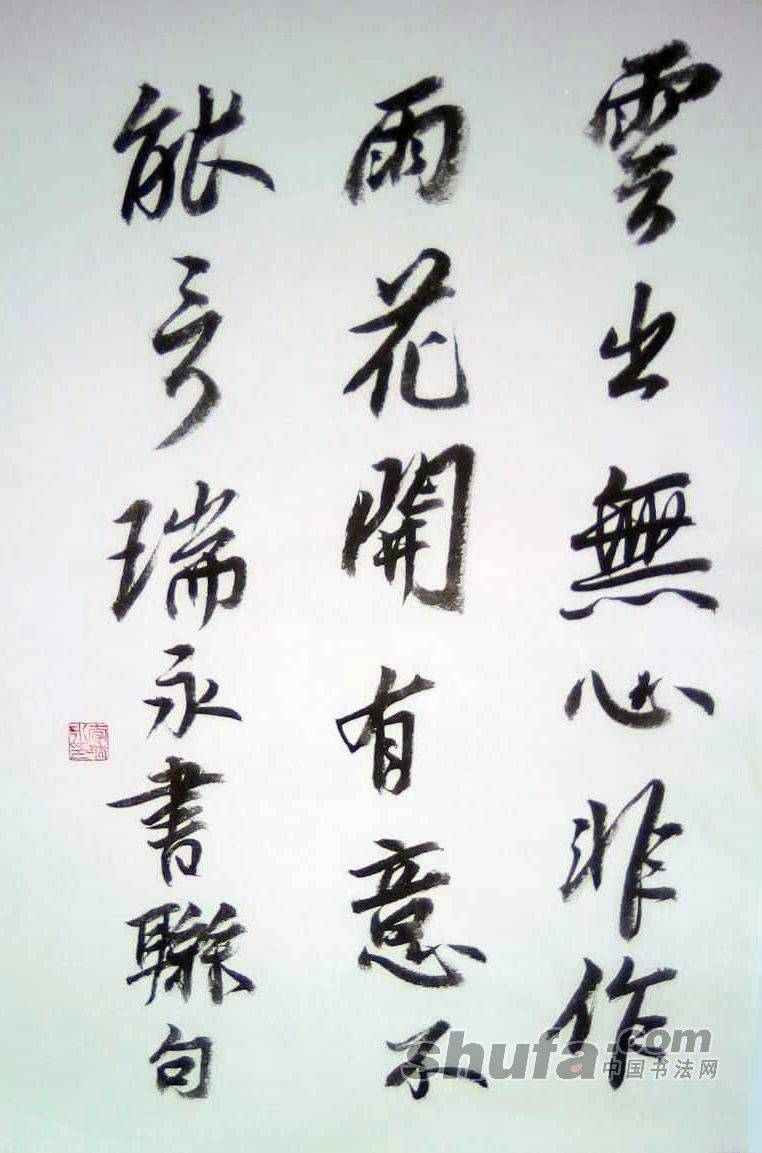 雲出無心非作
雨花開有意不
能言瑞永書聯句
shufa.com
中国书法网